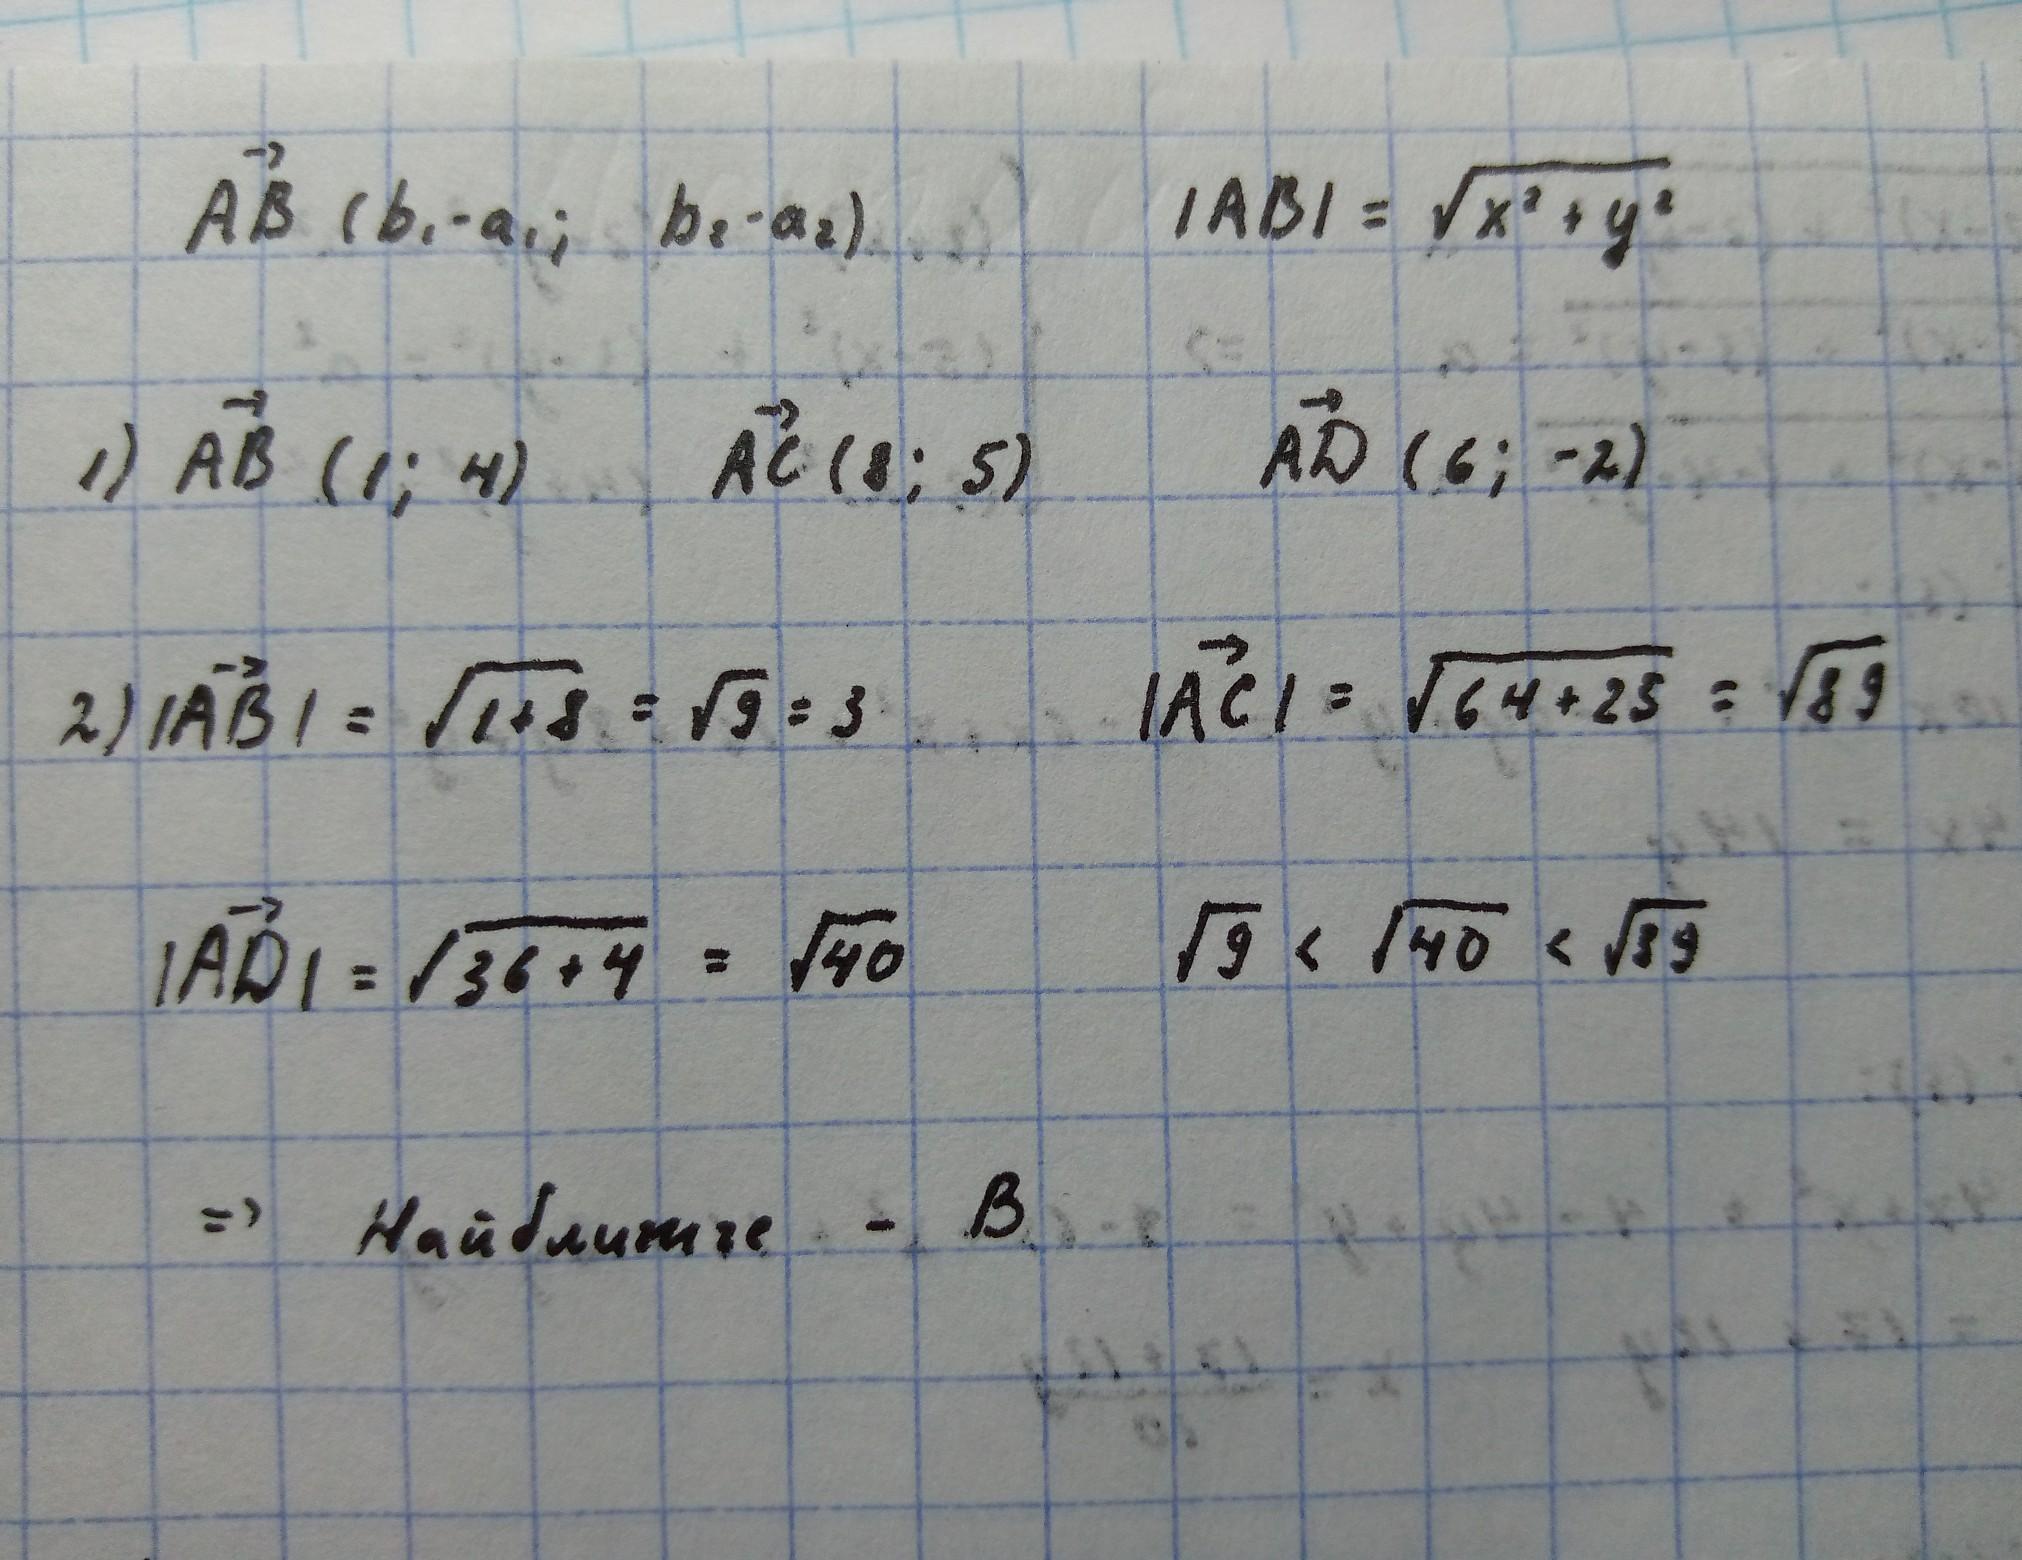 A⃗B (b₁-a₁; b₂-a₂) |AB| = √(x² + y²)
1) A⃗B (1; 4) A⃗C (8; 5) A⃗D (6; -2)
2) |A⃗B| = √(1+8) = √9 = 3 |A⃗C| = √(64+25) = √89
|A⃗D| = √(36+4) = √40 √9 < √40 < √89
=> Найближче - B